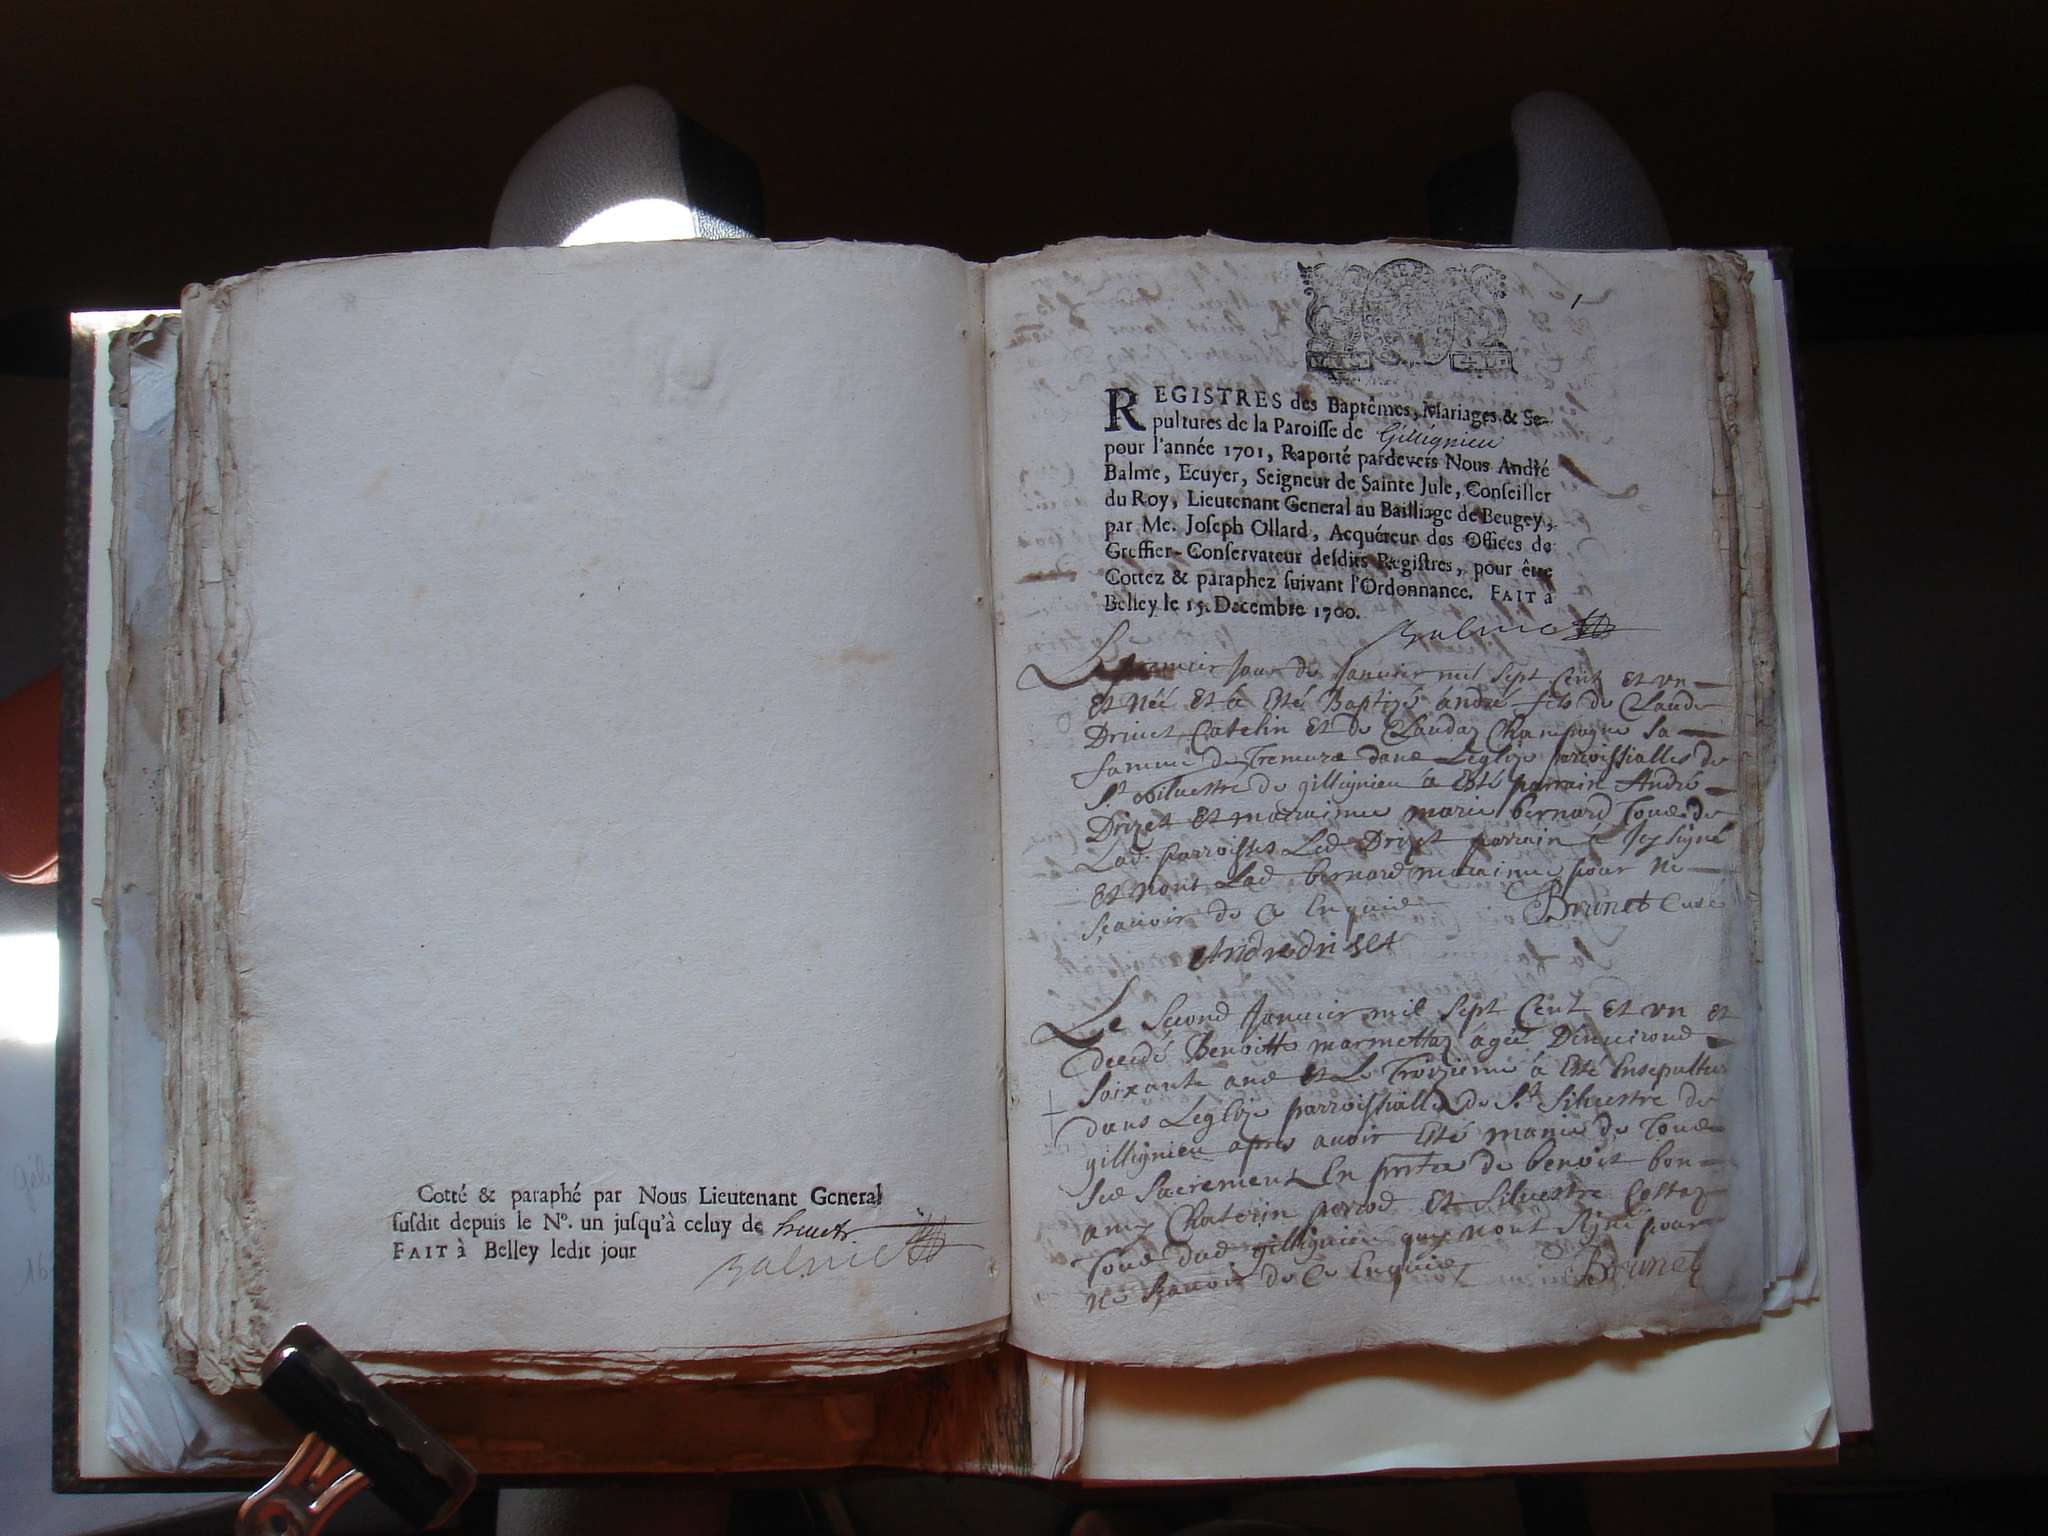 Cotté & paraphé par Nous Lieutenant General
susdit depuis le Nº. un jusqu'à celuy de
FAIT à Belley ledit jour
Balme
1
REGISTRES des Baptêmes, Mariages & Se-
pultures de la Paroisse de Gillignieu
pour l'année 1701, Raporté pardevers Nous André
Balme, Ecuyer, Seigneur de Sainte Jule, Conseiller
du Roy, Lieutenant General au Bailliage de Beugey,
par Me. Joseph Ollard, Acquéreur des Offices de
Greffier-Conservateur desdits Registres, pour être
Cottez & paraphez suivant l'Ordonnance. FAIT à
Belley le 15. Decembre 1700.
Balme
Le premier jour de Janvier mil sept Cent et un
et néé et à esté Baptizé andré fils de Claude
Driuet Catelin et de Claudaz Champagne sa
famme de Tremuraz dans Leglize parroissialles de
St Siluestre de gillignieu à esté parrain André
Drizet et marrainne marie bernard Tous de
Lad. parroisses Led Drizet parrain à sigsigné
et nont Lad bernard marainne pour ne
sçauoir de ce Enquis Brunet Curé
Andre driset
Le Second Januier mil sept Cent et un et
decedé Benoitte marmettaz ágeé Denuirond
soixante ans et Le Troizieme à Esté Ensepultur
dans Leglize parroissialle de St. Siluestre de
gillignieu apres auoir Esté munie de Tous
Sacrement En de benoit bon-
amy Chaterin perrod et Siluestre Costaz
Tous dud gillignieu qui nont signé pour
ne sçauoir de ce Enquis Brunet